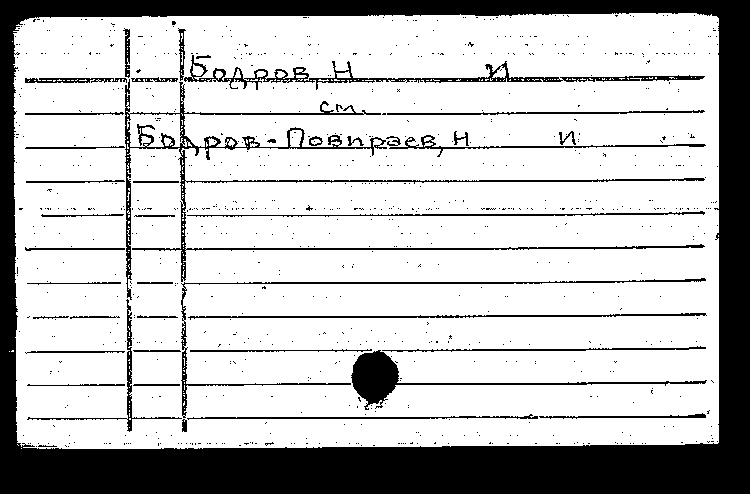 Бодров, Н И
см.
Бодров-Повпраев, Н И